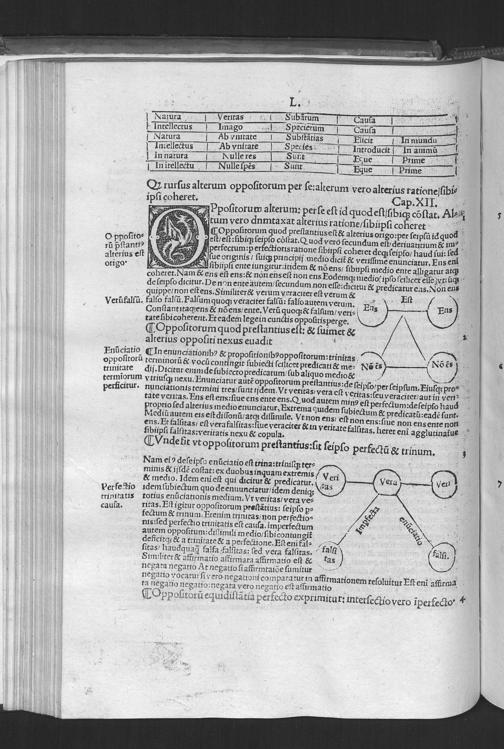 L.
Natura | Veritas | Subārum | Causa
Intellectus | Imago | Specierum | Causa
Natura | Ab vnitate | Substātias | Elicit | In mundu
Intellectus | Ab vnitate | Species | Introducit | In animū
In natura | Nulle res | Sunt | Eque | Prime
In ītellectu | Nulle spēs | Sunt | Eque | Prime
Qz rursus alterum oppositorum per se: alterum vero alterius ratione sibi
ipsi coheret. Cap.XII.
OPpositorum alterum: per se est id quod est: sibiqz cōstat. Al-
tum vero dūtaxat alterius ratione: sibiipsi coheret
Opposito-
rū prestanti9
alterius est
origo.
¶Oppositorum quod prestantius est & alterius origo: per seipsū id quod
est est: sibiqz seipso cōstat. Quod vero secundum est: deriuatiuum & im-
perfectum: perfectioris ratione sibiipsi coheret
sue originis: suiqz principij medio dicit & verissime enunciatur. Ens eni
sibiipsi ente iungitur. itidem & nō ens: sibiipsi medio ente alligatur atqz
coheret. Nam & ens est ens: & non ens est non ens
de seipso dicitur. Demum ente autem secundum non esse: dicitur & predicatur ens. Non ens
quippe: non est ens. Similiter & verum veraciter est verum &
Verū falsū.
falso falsū. Falsum quoqz veraciter falsū: falso autem verum.
Constant itaqz ens & nō ens: ente. Verū quoqz & falsum: veri-
tate sibi coherent. Et eadem lege in cunctis oppositis perge.
Ens
Est
Ens
Nō ēs
Nō ēs
¶Oppositorum quod prestantius est: & suimet &
alterius oppositi nexus euadit
Enūciatio
oppositorū
trinitate
terminorum
perficitur.
¶In enunciationib9 & propositionib9 oppositorum: trinitas
terminorū & vocū contingit subiecti scilicet predicati & me-
dij. Dicitur enim de subiecto predicatum: sub aliquo medio &
vtriusqz nexu. Enunciatur autē oppositorum prestantius: de seipso: per seipsum. Eiusqz pro-
nunciationis termini tres: sunt ijdem. Vt veritas: vera est veritas: seu veraciter: aut in veri-
tate veritas. Ens est ens: siue ens ente ens. Quod autem min9 est perfectum: de seipso haud
proprio sed alterius medio enunciatur. Extrema quidem subiectum & predicatū: eadē sunt.
Mediū autem eis est dissonū: atqz dissimile. Vt non ens: est non ens: siue non ens ente non
ens. Et falsitas: est vera falsitas: siue veraciter & in veritate falsitas. heret eni agglutinatur
sibiipsi falsitas: veritatis nexu & copula.
¶Unde fit vt oppositorum prestantius: sit seipso perfectū & trinum.
Nam ei9 de seipso enūciatio est trina: trinisqz ter-
minis & ijsdē costat: ex duobus inquam extremis
& medio. Idem eni est qui dicitur & predicatur.
Perfectio
trinitatis
causa.
idem subiectum quo de enunciatur: idem deniqz
totius enunciationis medium. Vt veritas: vera ve-
ritas. Est igitur oppositorum prestātius: seipso p-
fectum & trinum. Etenim trinitas: non perfectio-
nis: sed perfectio trinitatis est causa. Imperfectum
autem oppositum: dissimili medio sibi contungit
deficitqz & a trinitate & a perfectione. Est eni fal-
sitas: haudquaqz falsa falsitas: sed vera falsitas.
Similiter & affirmatio affirmata affirmatio est &
negata negatio. At negatio si affirmatiōe sumitur
negatio vocatur si vero negationi comparatur in affirmationem resoluitur. Est eni affirma
ta negatio negatio: negata vero negatio est affirmatio
Veri
tas
Vera
Veri
Imperfecta
enūciatio
falsi
tas
falsi.
¶Oppositorū equidistātia perfecto exprimitur: intersectio vero īperfecto.
1
2
3
4